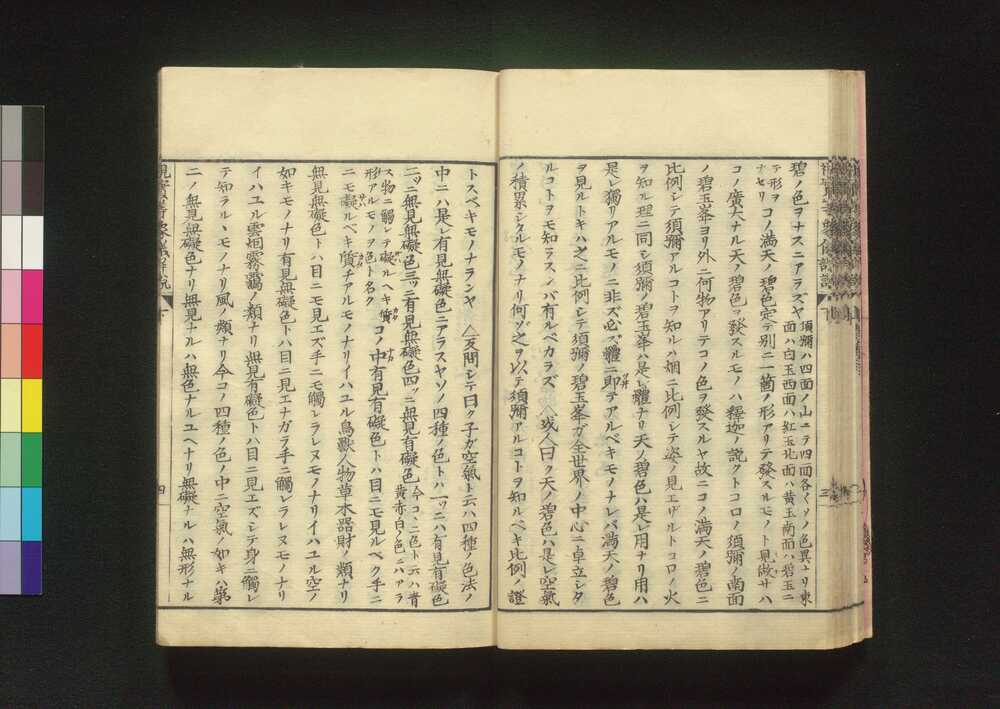 碧ノ色ヲナスニアラズヤ 須彌ハ四面ノ山ニテ四面各くソノ色異ナリ東
面ハ白玉西面ハ紅玉北面ハ黄玉南面ハ碧玉ニ
テ形ヲナセリ コノ滿天ノ碧色定テ別ニ一箇ノ形アリテ發スルモノト見做サハ
コノ廣大ナル天ノ碧色ヲ發スルモノハ釋迦ノ説クトコロノ須彌ノ南面
ノ碧玉峯ヨリ外ニ何物アリテコノ色ヲ發スルヤ故ニコノ滿天ノ碧色ニ
比例シテ須彌アルコトヲ知ルハ烟ニ比例シテ姿ノ見エザルトコロノ火
ヲ知ル理ニ同シ須彌ノ碧玉峯ハ是レ體ナリ天ノ碧色ハ是レ用ナリ用ハ
是レ獨リアルモノニ非ズ必ズ體ニ即テアルベキモノナレバ滿天ノ碧色
ヲ見ルトキハ之ニ比例シテ須彌ノ碧玉峯ガ全世界ノ中心ニ卓立シタ
ルコトヲモ知ラスンバ有ルベカラズ 或人曰ク天ノ碧色ハ是レ空氣
ノ積累シタルモノナリ何ゾ之ヲ以テ須彌アルコトヲ知ルベキ比例ノ證
トスベキモノナランヤ 反問シテ曰ク子ガ空氣ト云ハ四種ノ色法ノ
中ニハ是レ有見無礙色ニアラスヤソノ四種ノ色トハ一ッニハ有見有礙色
二ッニ無見無礙色三ッニ有見無礙色四ッニ無見有礙色 今コヽニ色ト云ハ青
黄赤白ノ色ニハアラ
ス物ニ觸レテ礙ルヘキ質
形アルモノヲ色ト名ク コノ中有見有礙色トハ目ニモ見ルベク手ニ
ニモ礙ルベキ質チアルモノナリイハユル鳥獸人物草木器財ノ類ナリ
無見無礙色トハ目ニモ見エズ手ニモ觸レラレヌモノナリイハユル空ノ
如キモノナリ有見無礙色トハ目ニ見エナガラ手ニ觸レラレヌモノナリ
イハユル雲烟霧靄ノ類ナリ無見有礙色トハ目ニ見エズシテ身ニ觸レ
テ知ラルヽモノナリ風ノ類ナリ今コノ四種ノ色ノ中ニ空氣ノ如キハ第
二ノ無見無礙色ナリ無見ナルハ無色ナルユヘナリ無礙ナルハ無形ナル